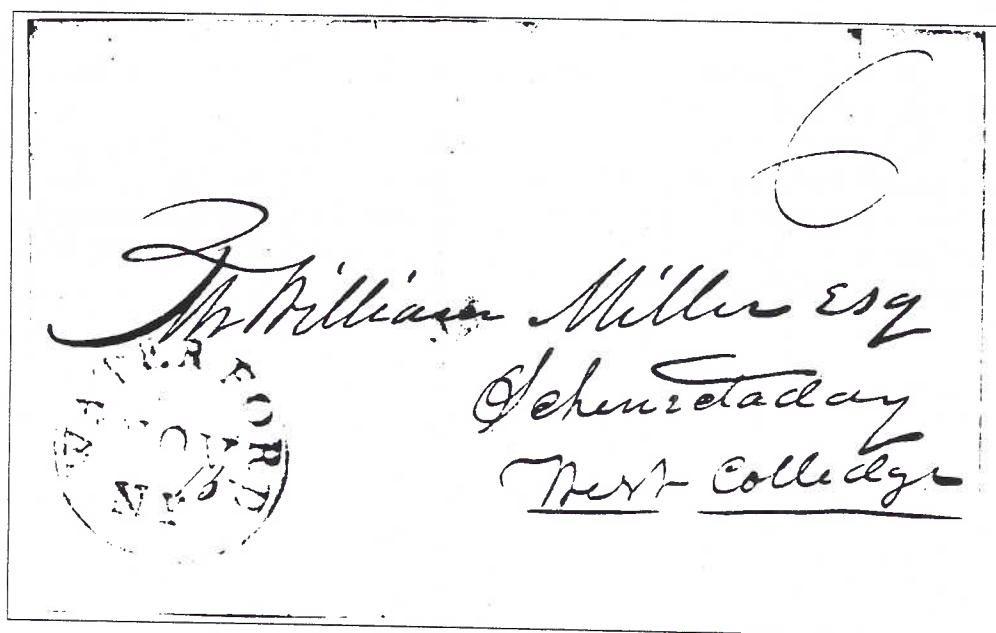 6
Mr William Miller Esq
Schenectaday
West Colledge
WATERFORD
NOV
NY